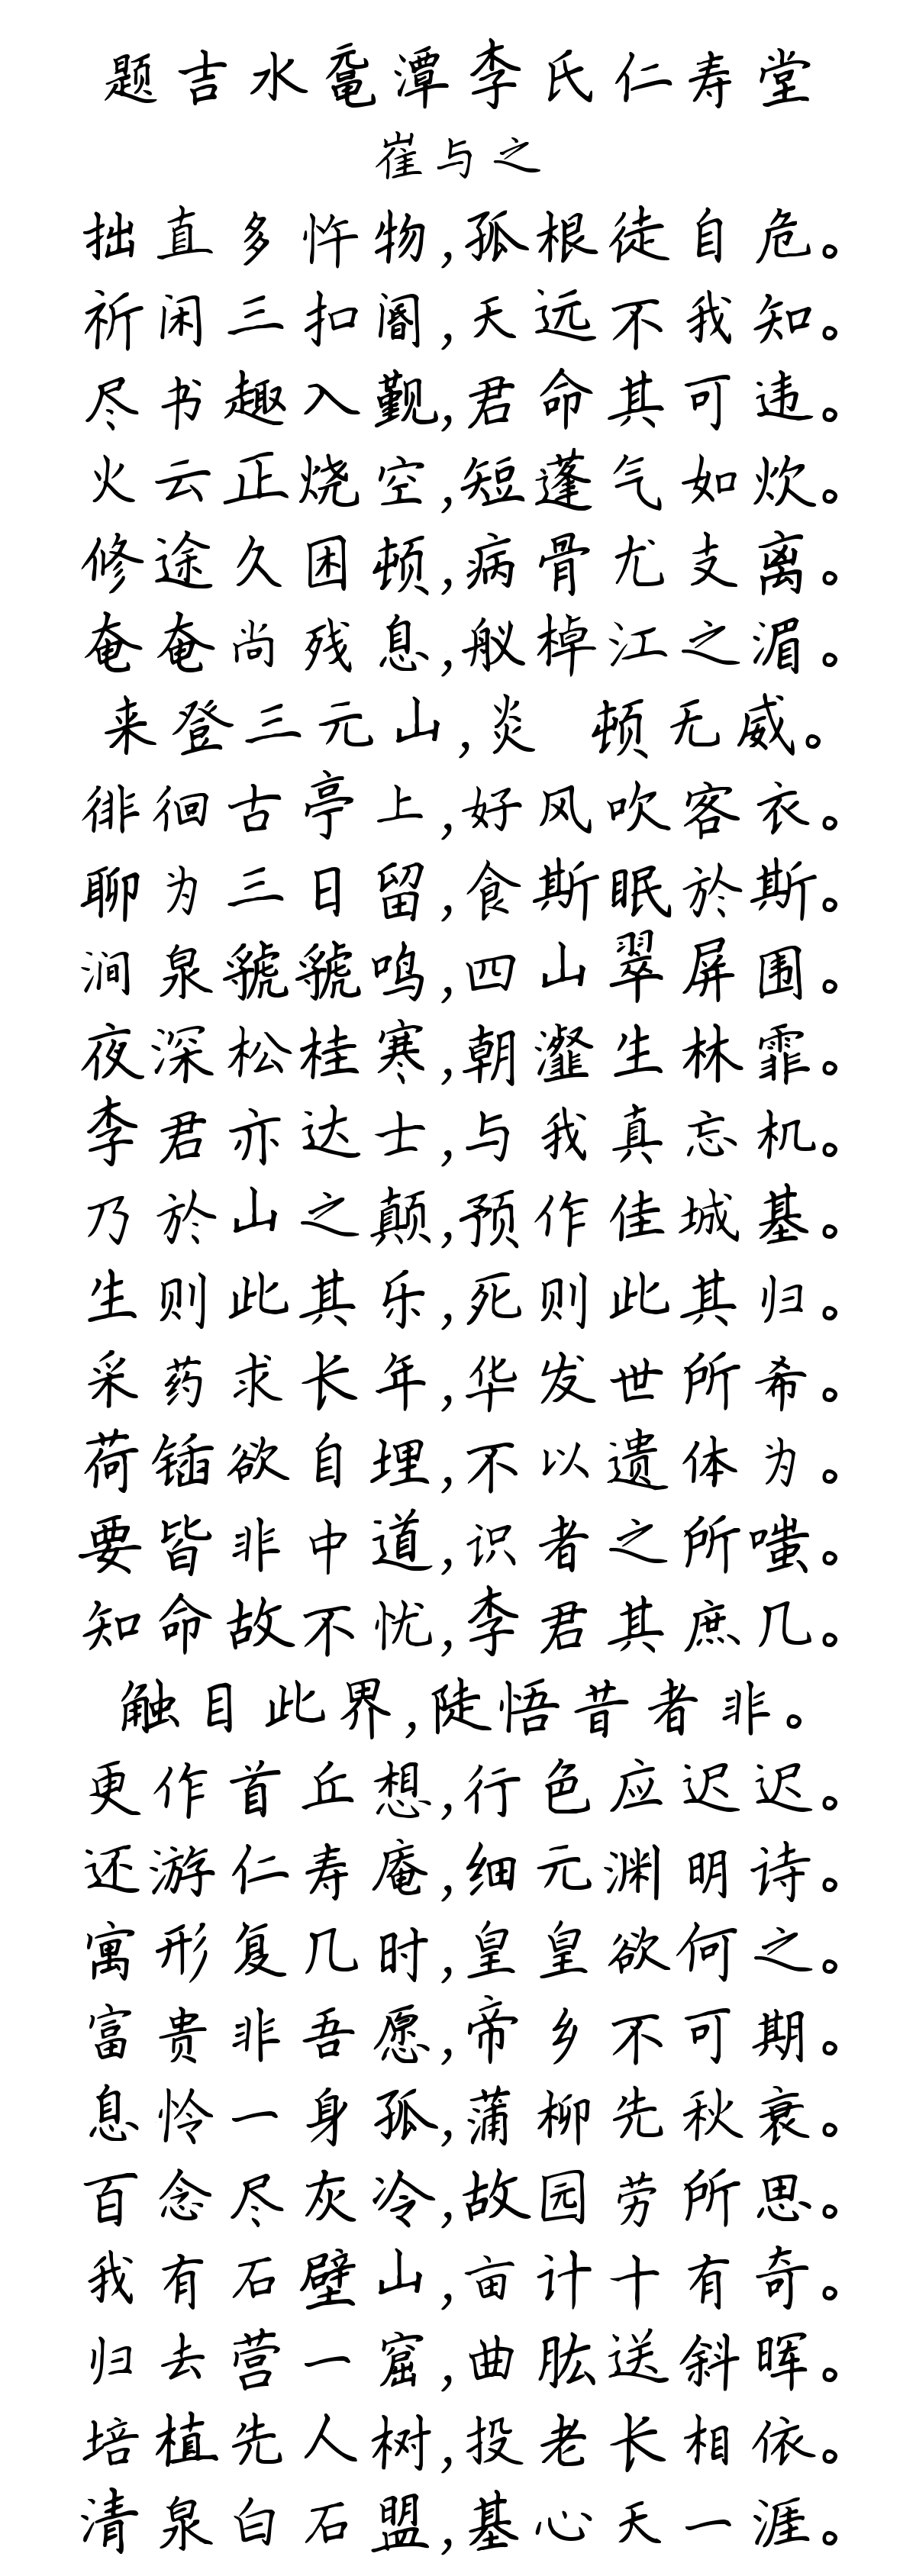 题吉水鼋潭李氏仁寿堂
崔与之
拙直多忤物,孤根徒自危。
祈闲三扣阍,天远不我知。
尽书趣入觐,君命其可违。
火云正烧空,短蓬气如炊。
修途久困顿,病骨尤支离。
奄奄尚残息,舣棹江之湄。
来登三元山,炎 顿无威。
徘徊古亭上,好风吹客衣。
聊为三日留,食斯眠於斯。
涧泉虢虢鸣,四山翠屏围。
夜深松桂寒,朝瀣生林霏。
李君亦达士,与我真忘机。
乃於山之颠,预作佳城基。
生则此其乐,死则此其归。
采药求长年,华发世所希。
荷锸欲自埋,不以遗体为。
要皆非中道,识者之所嗤。
知命故不忧,李君其庶几。
触目此界,陡悟昔者非。
更作首丘想,行色应迟迟。
还游仁寿庵,细元渊明诗。
寓形复几时,皇皇欲何之。
富贵非吾愿,帝乡不可期。
息怜一身孤,蒲柳先秋衰。
百念尽灰冷,故园劳所思。
我有石壁山,亩计十有奇。
归去营一窟,曲肱送斜晖。
培植先人树,投老长相依。
清泉白石盟,基心天一涯。